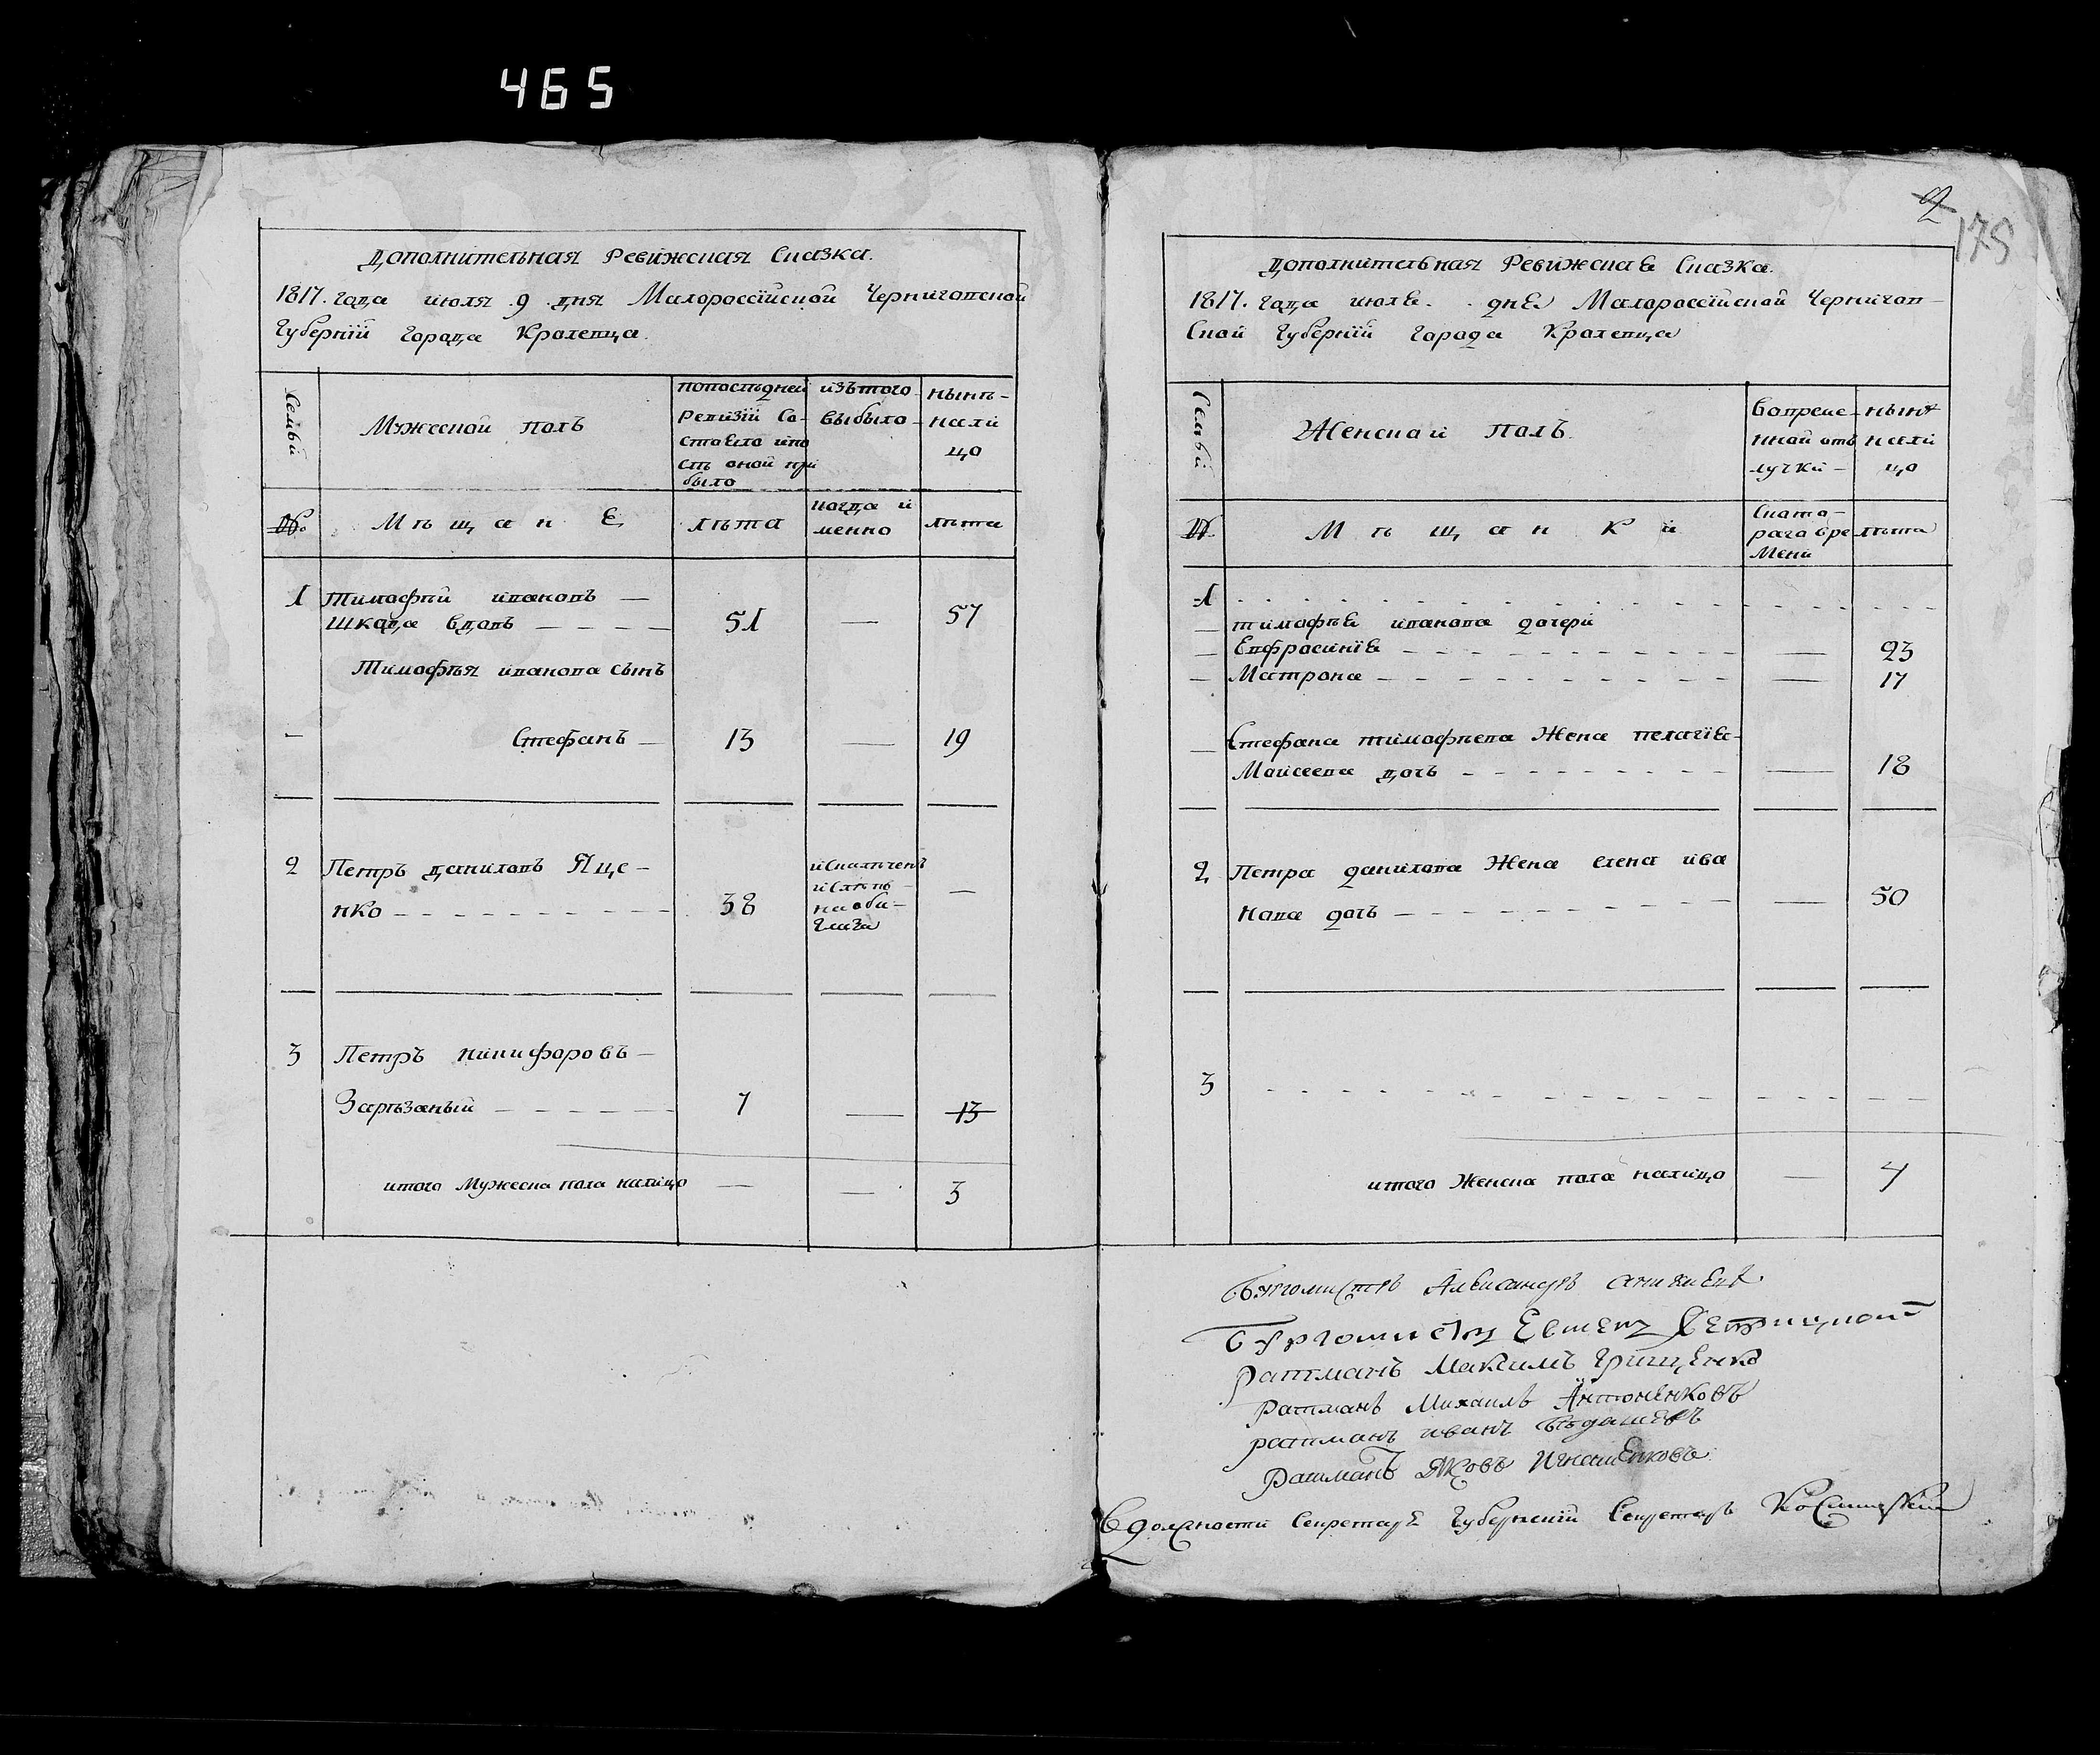 465
2
175
Дополнительная Ревижская Сказка.
1817. года июля 9 дня Малороссійской Черниговской
Губерніи города Кролевца.
Семьи
Мужеской полъ
попослѣдней
Ревизіи Со-
стояло ипо
слѣ оной при
было
изътого
выбыло
нынѣ-
нали
цо
№.
Мѣщане
лѣта
когда и
менно
лѣта
1 Тимофѣй ивановъ —
Шкода вдовъ — 51 — 57
Тимофѣя иванова сынъ
— Стефанъ — 13 — 19
2 Петръ даниловъ Яце-
нко — 38 —
исключенъ
3 Петръ никифоровъ —
Зарѣзаный — 7 — 13
итого Мужеска пола налицо — — 3
Дополнительная Ревижская Сказка.
1817. года июля . дня Малороссійской Чернигов-
Ской Губерніи города Кролевца
Семьи
Женской полъ.
Вопреме-
нной отъ
лучки —
нынѣ
нали
цо
№.
Мѣщанки
Скато-
рого вре
Мени
лѣта
1
— тимофѣя иванова дочери
— Евфросинія — 23
— Матрона — 17
— Стефана тимофѣева Жена пелагія
Моисеева дочь — 18
2 Петра данилова Жена елена ива
нова дочь — 50
3
итого Женска пола налицо — 4
Бургомистръ Александръ
Бургомистръ
Ратманъ Максимъ Грищенко
Ратманъ Михаилъ Антоненковъ
ратманъ иванъ
Ратманъ Яковъ Игнатенковъ
В должности Секретаря Губернскій Секретарь